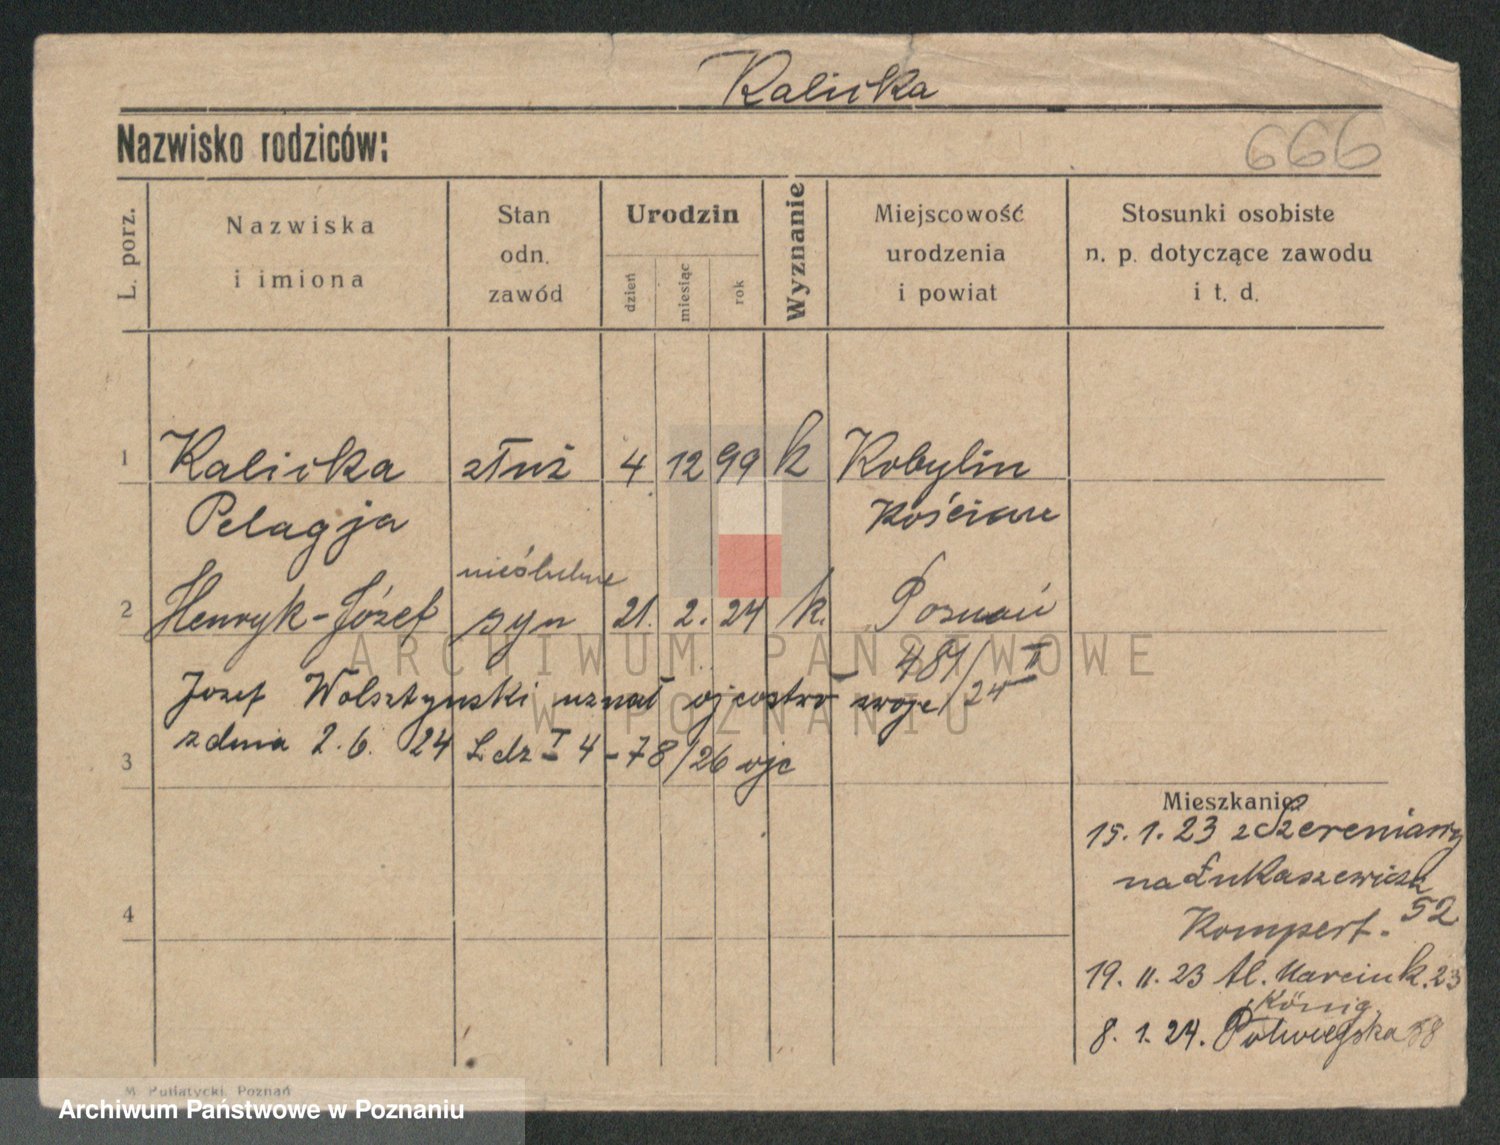 Kalicka
Nazwisko rodziców:
666
L. porz.
Nazwiska
i imiona
Stan
odn.
zawód
Urodzin
dzień
miesiąc
rok
Wyznanie
Miejscowość
urodzenia
i powiat
Stosunki osobiste
n. p. dotyczące zawodu
i t. d.
1 Kalicka służ 4 12 99 k Kobylin
Pelagja Kościan
nieślubne
2 Henryk-Józef syn 21. 2. 24 k. Poznań
481/II
Józef Wolsztyński uznał ojcostwo swoje /24
z dnia 2.6. 24 Ldz I 4-78/26 ojc
3
4
Mieszkanie:
15. 1. 23 z Szreniawy
na Łukaszewicza
52
Kompert.
19. 11. 23 Al. Marcink. 23
König
8. 1. 24. Półwiejska 38
M. Putiatycki, Poznań
ARCHIWUM PAŃSTWOWE
W POZNANIU
Archiwum Państwowe w Poznaniu